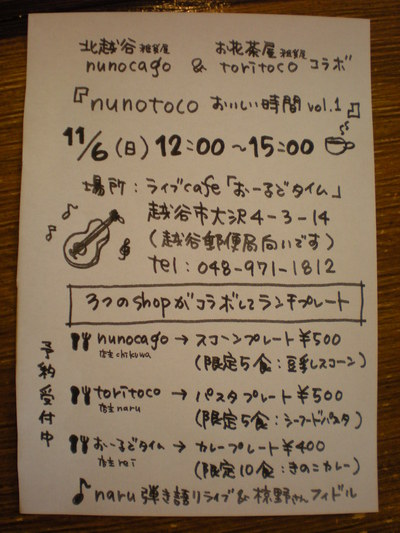 北越谷 雑貨屋 お花茶屋 雑貨屋
nunocago & toritoco コラボ
『nunotoco おいしい時間 vol.1』
11/6(日) 12:00~15:00
場所:ライブcafe「おーるどタイム」
越谷市大沢4-3-14
(越谷郵便局向いです)
tel:048-971-1812
3つのshopがコラボしてランチプレート
予約受付中
nunocago→スコーンプレート¥500
店主chikuwa (限定5食:豆乳スコーン)
toritoco→パスタプレート¥500
店主naru (限定5食:シーフードパスタ)
おーるどタイム→カレープレート¥400
店主 (限定10食:きのこカレー)
naru弾き語りライブ& 椋野さんフィドル